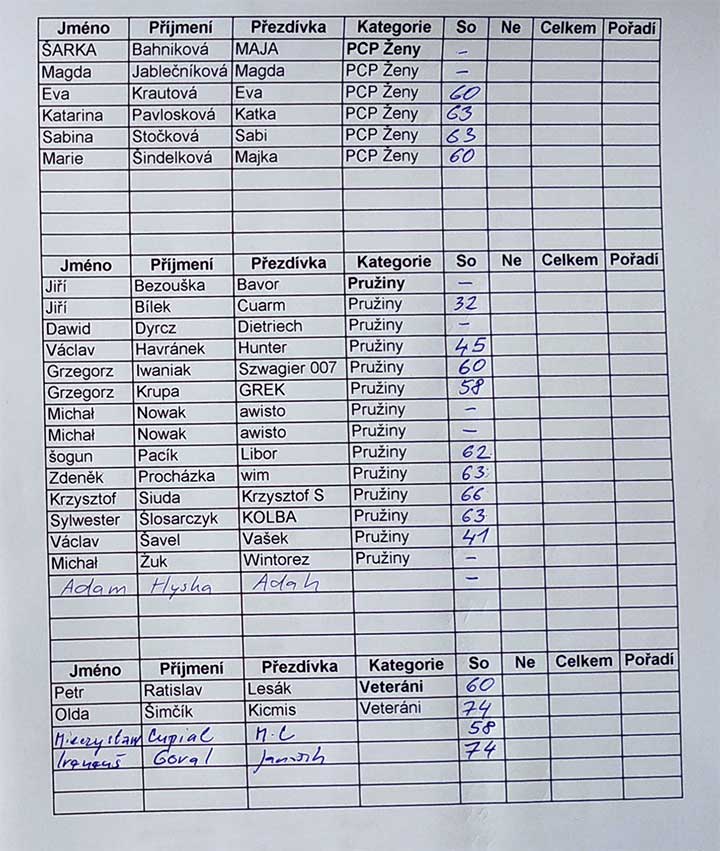 Jméno Příjmení Přezdívka Kategorie So Ne Celkem Pořadí
ŠARKA Bahniková MAJA PCP Ženy –
Magda Jablečníková Magda PCP Ženy –
Eva Krautová Eva PCP Ženy 60
Katarina Pavlosková Katka PCP Ženy 63
Sabina Stočková Sabi PCP Ženy 63
Marie Šindelková Majka PCP Ženy 60
Jméno Příjmení Přezdívka Kategorie So Ne Celkem Pořadí
Jiří Bezouška Bavor Pružiny –
Jiří Bílek Cuarm Pružiny 32
Dawid Dyrcz Dietriech Pružiny –
Václav Havránek Hunter Pružiny 45
Grzegorz Iwaniak Szwagier 007 Pružiny 60
Grzegorz Krupa GREK Pružiny 58
Michał Nowak awisto Pružiny –
Michał Nowak awisto Pružiny –
šogun Pacík Libor Pružiny 62
Zdeněk Procházka wim Pružiny 63
Krzysztof Siuda Krzysztof S Pružiny 66
Sylwester Ślosarczyk KOLBA Pružiny 63
Václav Šavel Vašek Pružiny 41
Michał Żuk Wintorez Pružiny –
Adam Hyska Adah –
Jméno Příjmení Přezdívka Kategorie So Ne Celkem Pořadí
Petr Ratislav Lesák Veteráni 60
Olda Šimčík Kicmis Veteráni 74
Mieczysław Cupial M.C 58
Goral 74